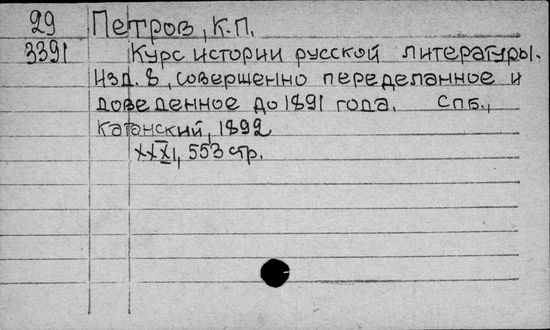 29 Петров, К.П.
3391 Курс истории русской литературы.
Изд. 8, совершенно переделанное и
доведенное до 1891 года. Спб.,
Катанский, 1892
XXXI, 553 стр.